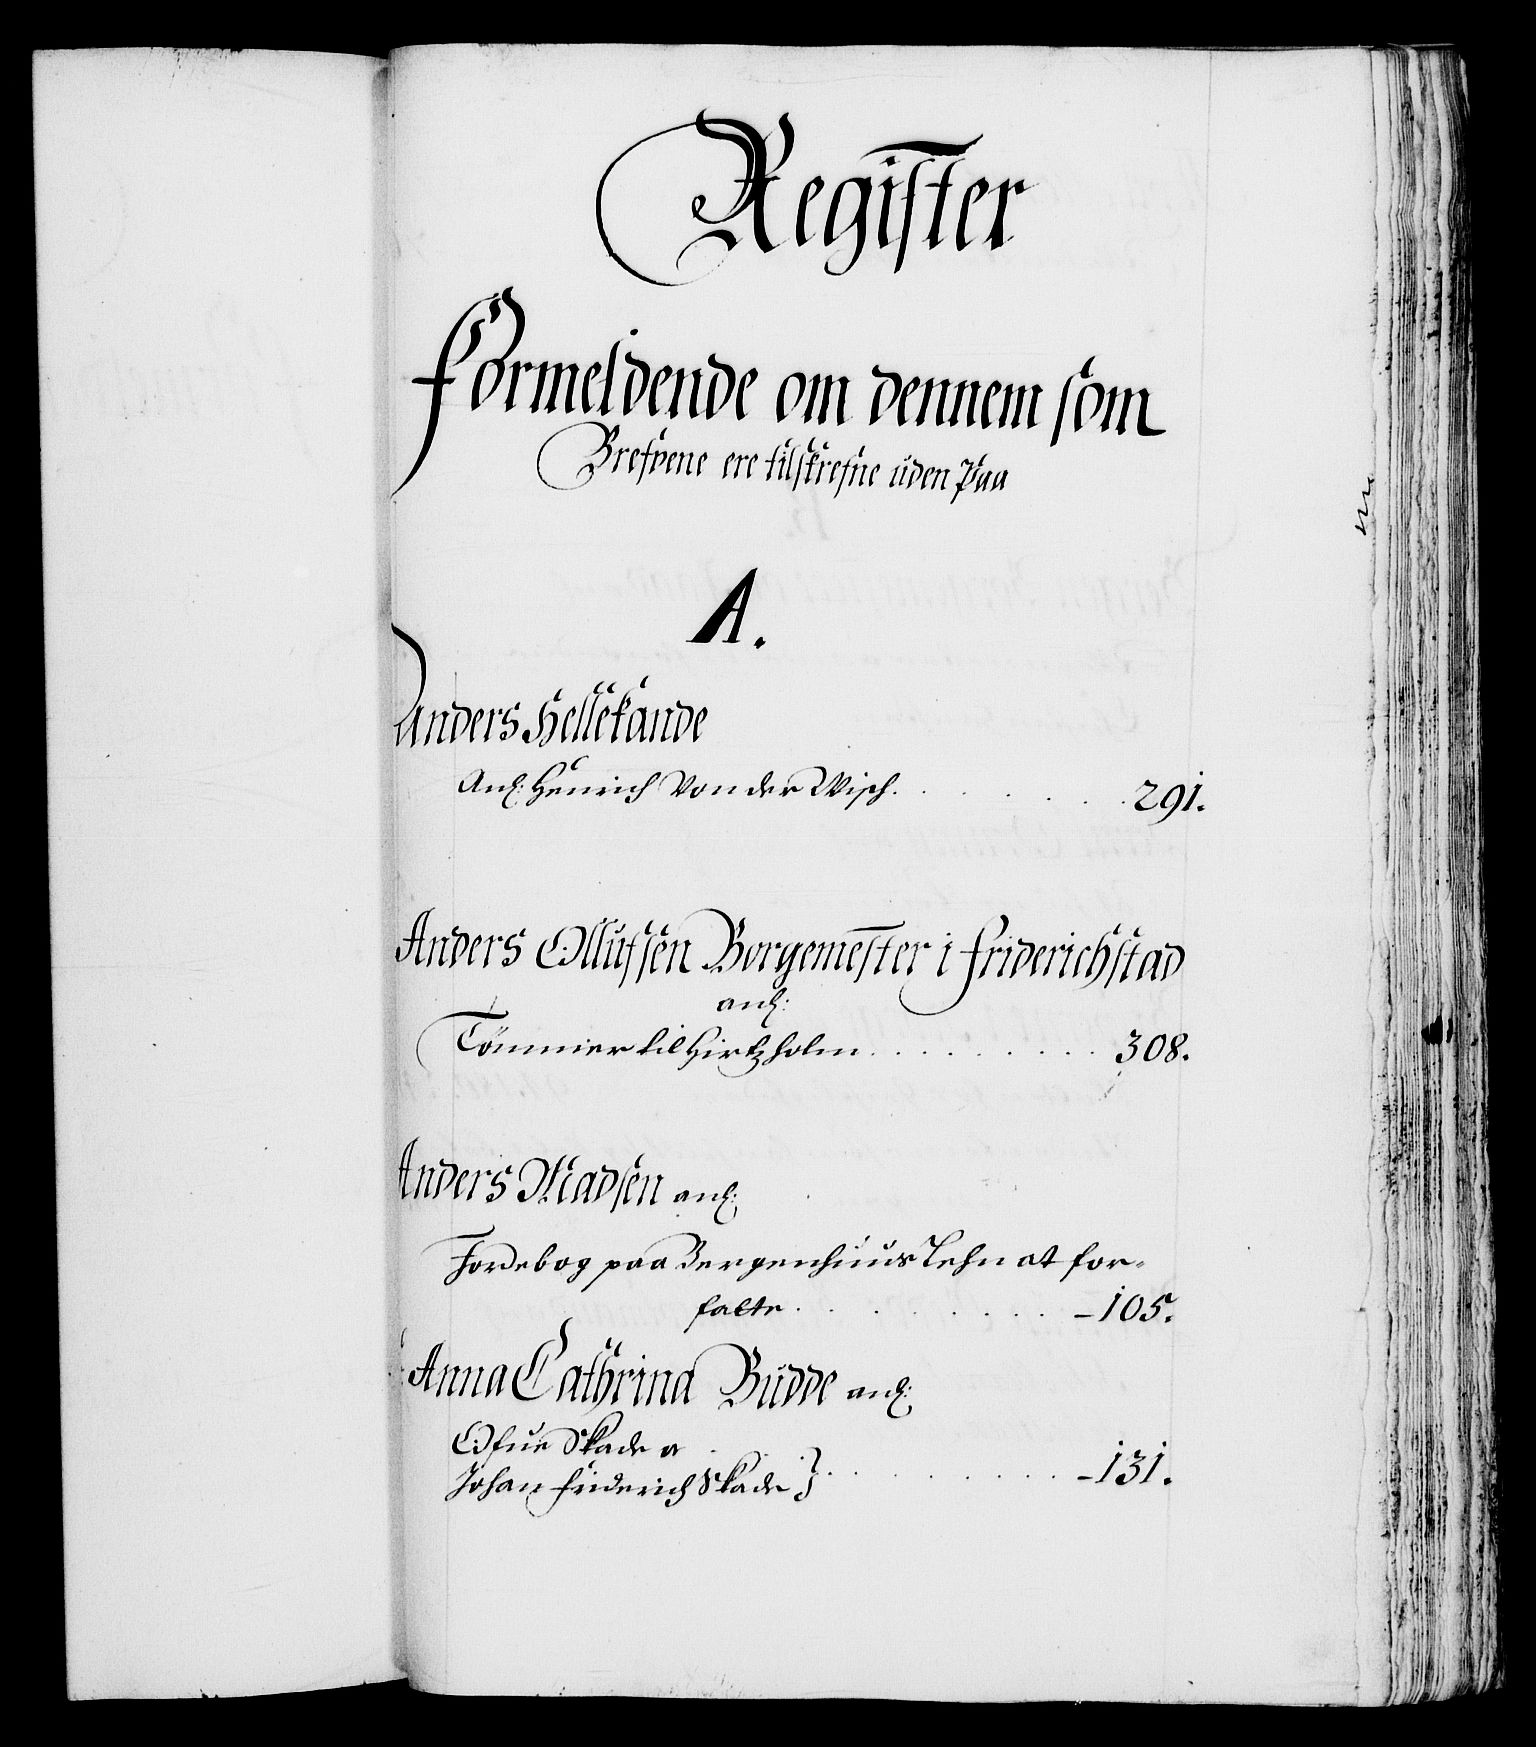 Register
formeldende om dennem som
Brefvene ere tilskrefne uden Paa
A.
Anders Hellekande
Anl: Henrich Von der Wisch. . . . . . . 291.
Anders Ollufsen Borgemester i Friderichstad
anl:
Tømmer til Hirtzholm . . . . . . . . . 308.
Anders Madsen anl:
Jordebog paa Bergenhuus Lehn at for-
fatte . . . . . . . . – 105.
Anna Cathrina Budde anl:
Skade
Johan Friderich Skade } . . . . . . . . – 131.